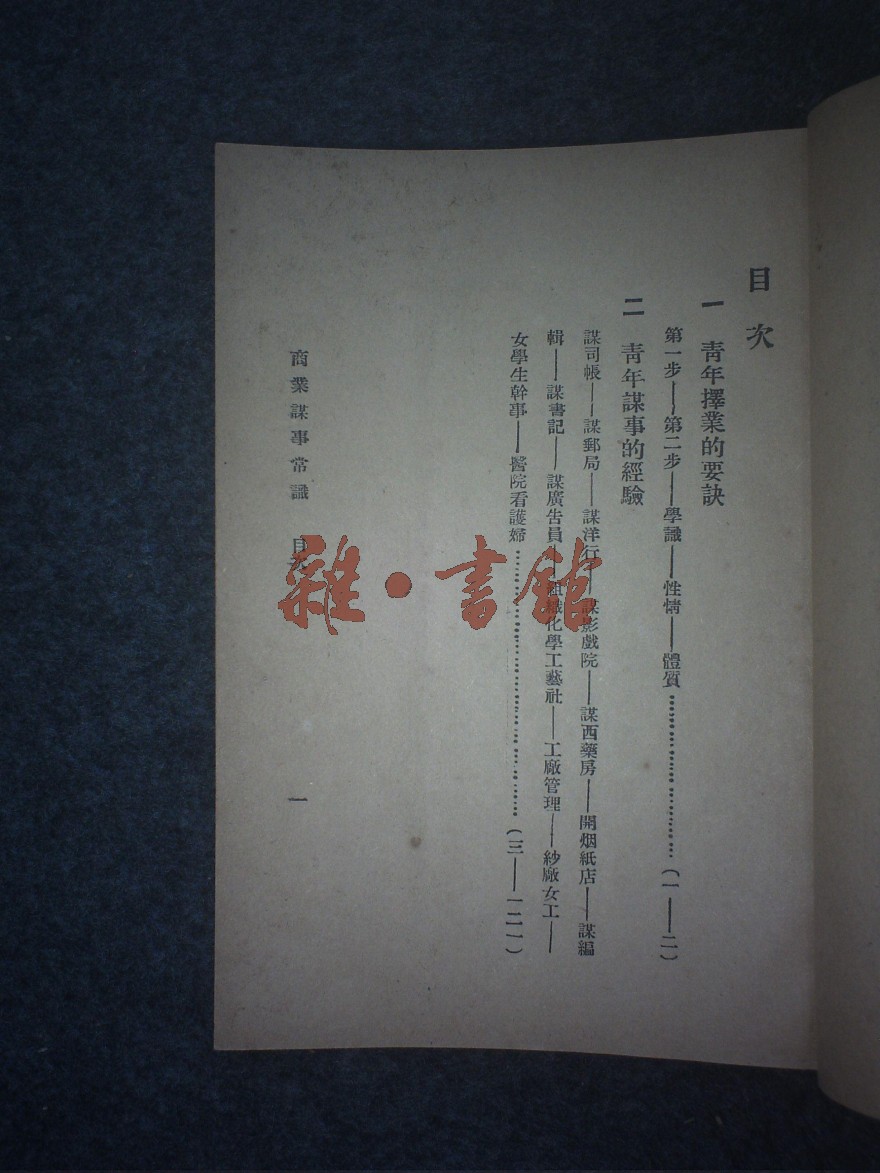 目次
一 青年擇業的要訣
第一步——第二步——學識——性情——體質…………………(一——二)
二 青年謀事的經驗
謀司帳——謀郵局——謀洋行——謀影戲院——謀西藥房——開烟紙店——謀編
輯——謀書記——謀廣告員——組織化學工藝社——工廠管理——紗廠女工——
女學生幹事——醫院看護婦…………………………(三——一二一)
商業謀事常識 目次 一
雜·書館